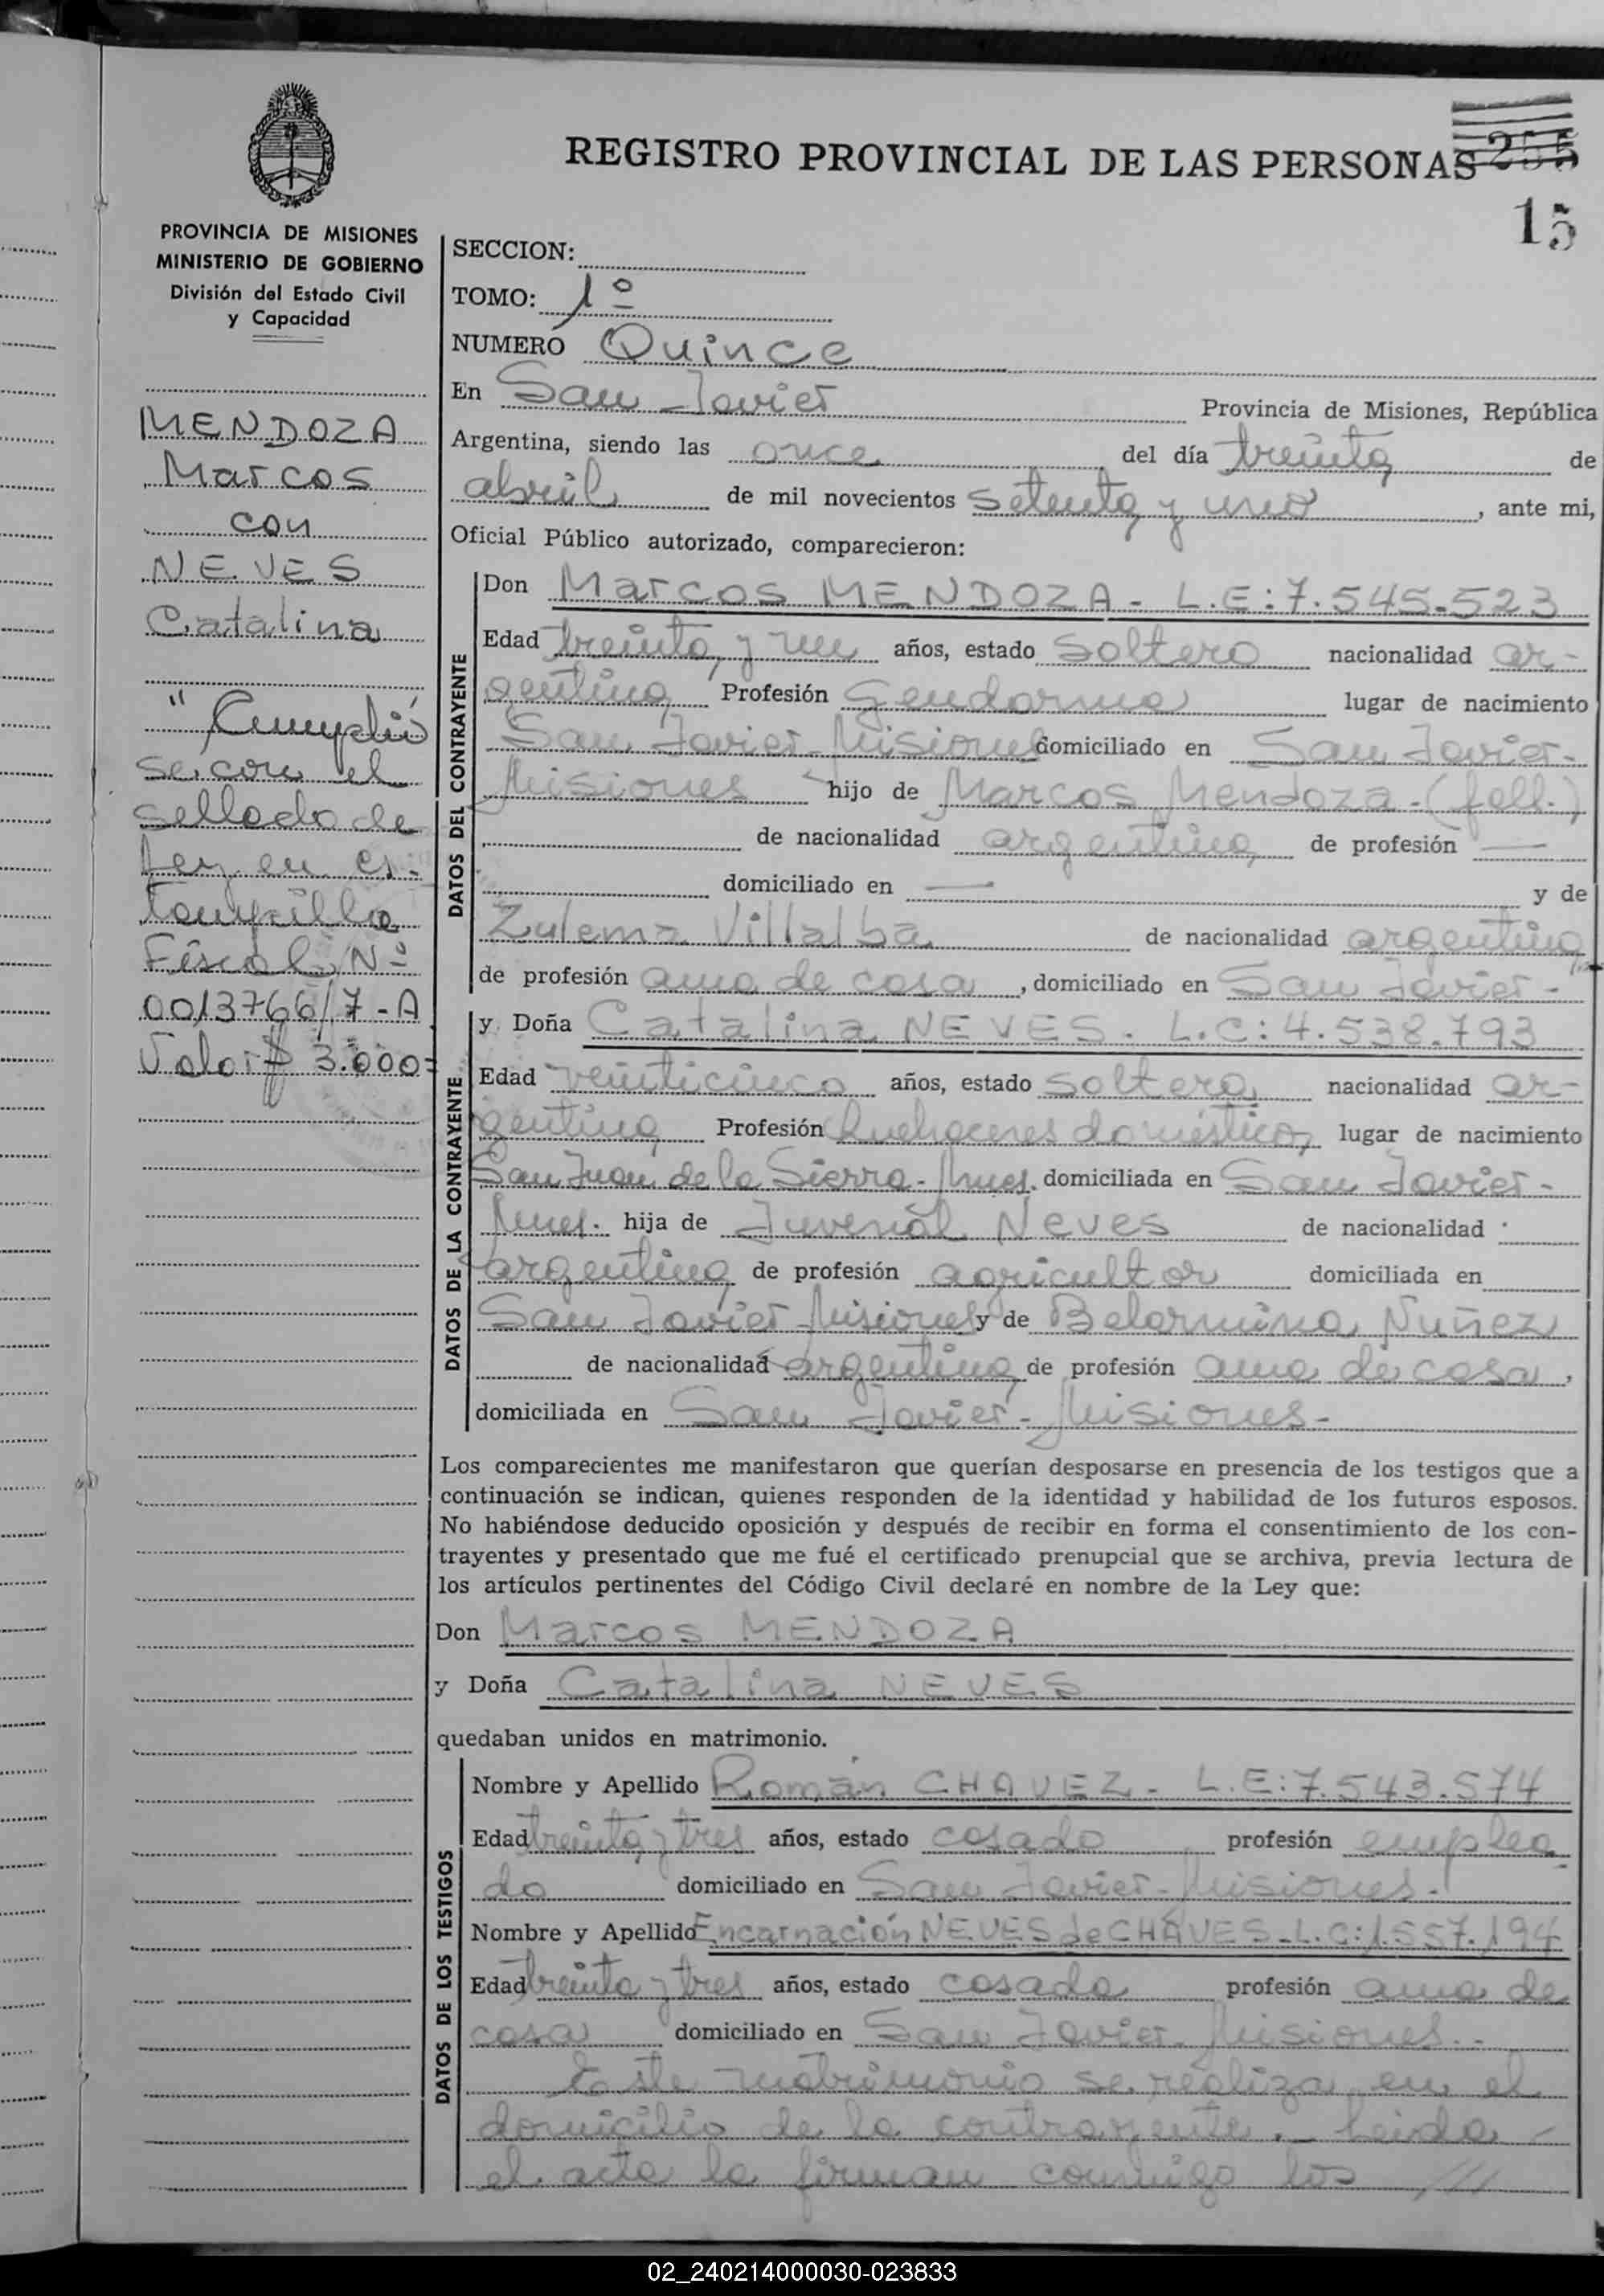 REGISTRO PROVINCIAL DE LAS PERSONAS 255
15
PROVINCIA DE MISIONES
MINISTERIO DE GOBIERNO
División del Estado Civil
y Capacidad
MENDOZA
Marcos
con
NEVES
Catalina
"Cumplió
se con el
sellado de
Ley en es-
tampilla
Fiscal Nº
0013766/7-A
Valor $ 3.000=
SECCION:
TOMO: 1º
NUMERO Quince
En San Javier Provincia de Misiones, República
Argentina, siendo las once del día treinta de
abril de mil novecientos setenta y uno, ante mi,
Oficial Público autorizado, comparecieron:
DATOS DEL CONTRAYENTE
Don Marcos MENDOZA - L.E: 7.545.523
Edad treinta y un años, estado soltero nacionalidad ar-
gentina Profesión Gendarme lugar de nacimiento
San Javier-Misiones domiciliado en San Javier-
Misiones hijo de Marcos Mendoza-(fall.)
de nacionalidad argentina de profesión —
domiciliado en — y de
Zulema Villalba de nacionalidad argentina
de profesión ama de casa, domiciliado en San Javier-
DATOS DE LA CONTRAYENTE
y Doña Catalina NEVES. L.C: 4.538.793
Edad veinticinco años, estado soltera nacionalidad ar-
gentina Profesión Quehaceres domésticos lugar de nacimiento
San Juan de la Sierra-Mnes. domiciliada en San Javier-
Mnes. hija de Juvenal Neves de nacionalidad
argentina de profesión agricultor domiciliada en
San Javier Misiones y de Belarmina Nuñez
de nacionalidad argentina de profesión ama de casa,
domiciliada en San Javier-Misiones-
Los comparecientes me manifestaron que querían desposarse en presencia de los testigos que a
continuación se indican, quienes responden de la identidad y habilidad de los futuros esposos.
No habiéndose deducido oposición y después de recibir en forma el consentimiento de los con-
trayentes y presentado que me fué el certificado prenupcial que se archiva, previa lectura de
los artículos pertinentes del Código Civil declaré en nombre de la Ley que:
Don Marcos MENDOZA
y Doña Catalina NEVES
quedaban unidos en matrimonio.
DATOS DE LOS TESTIGOS
Nombre y Apellido Román CHAVEZ - L.E: 7.543.574
Edad treinta y tres años, estado casado profesión emplea
do domiciliado en San Javier-Misiones.
Nombre y Apellido Encarnación NEVES de CHAVES-L.C: 1.557.194
Edad treinta y tres años, estado casada profesión ama de
casa domiciliado en San Javier-Misiones.-
Este matrimonio se realiza en el
domicilio de la contrayente.- Leida
el acta la firman conmigo los ///
02_240214000030-023833